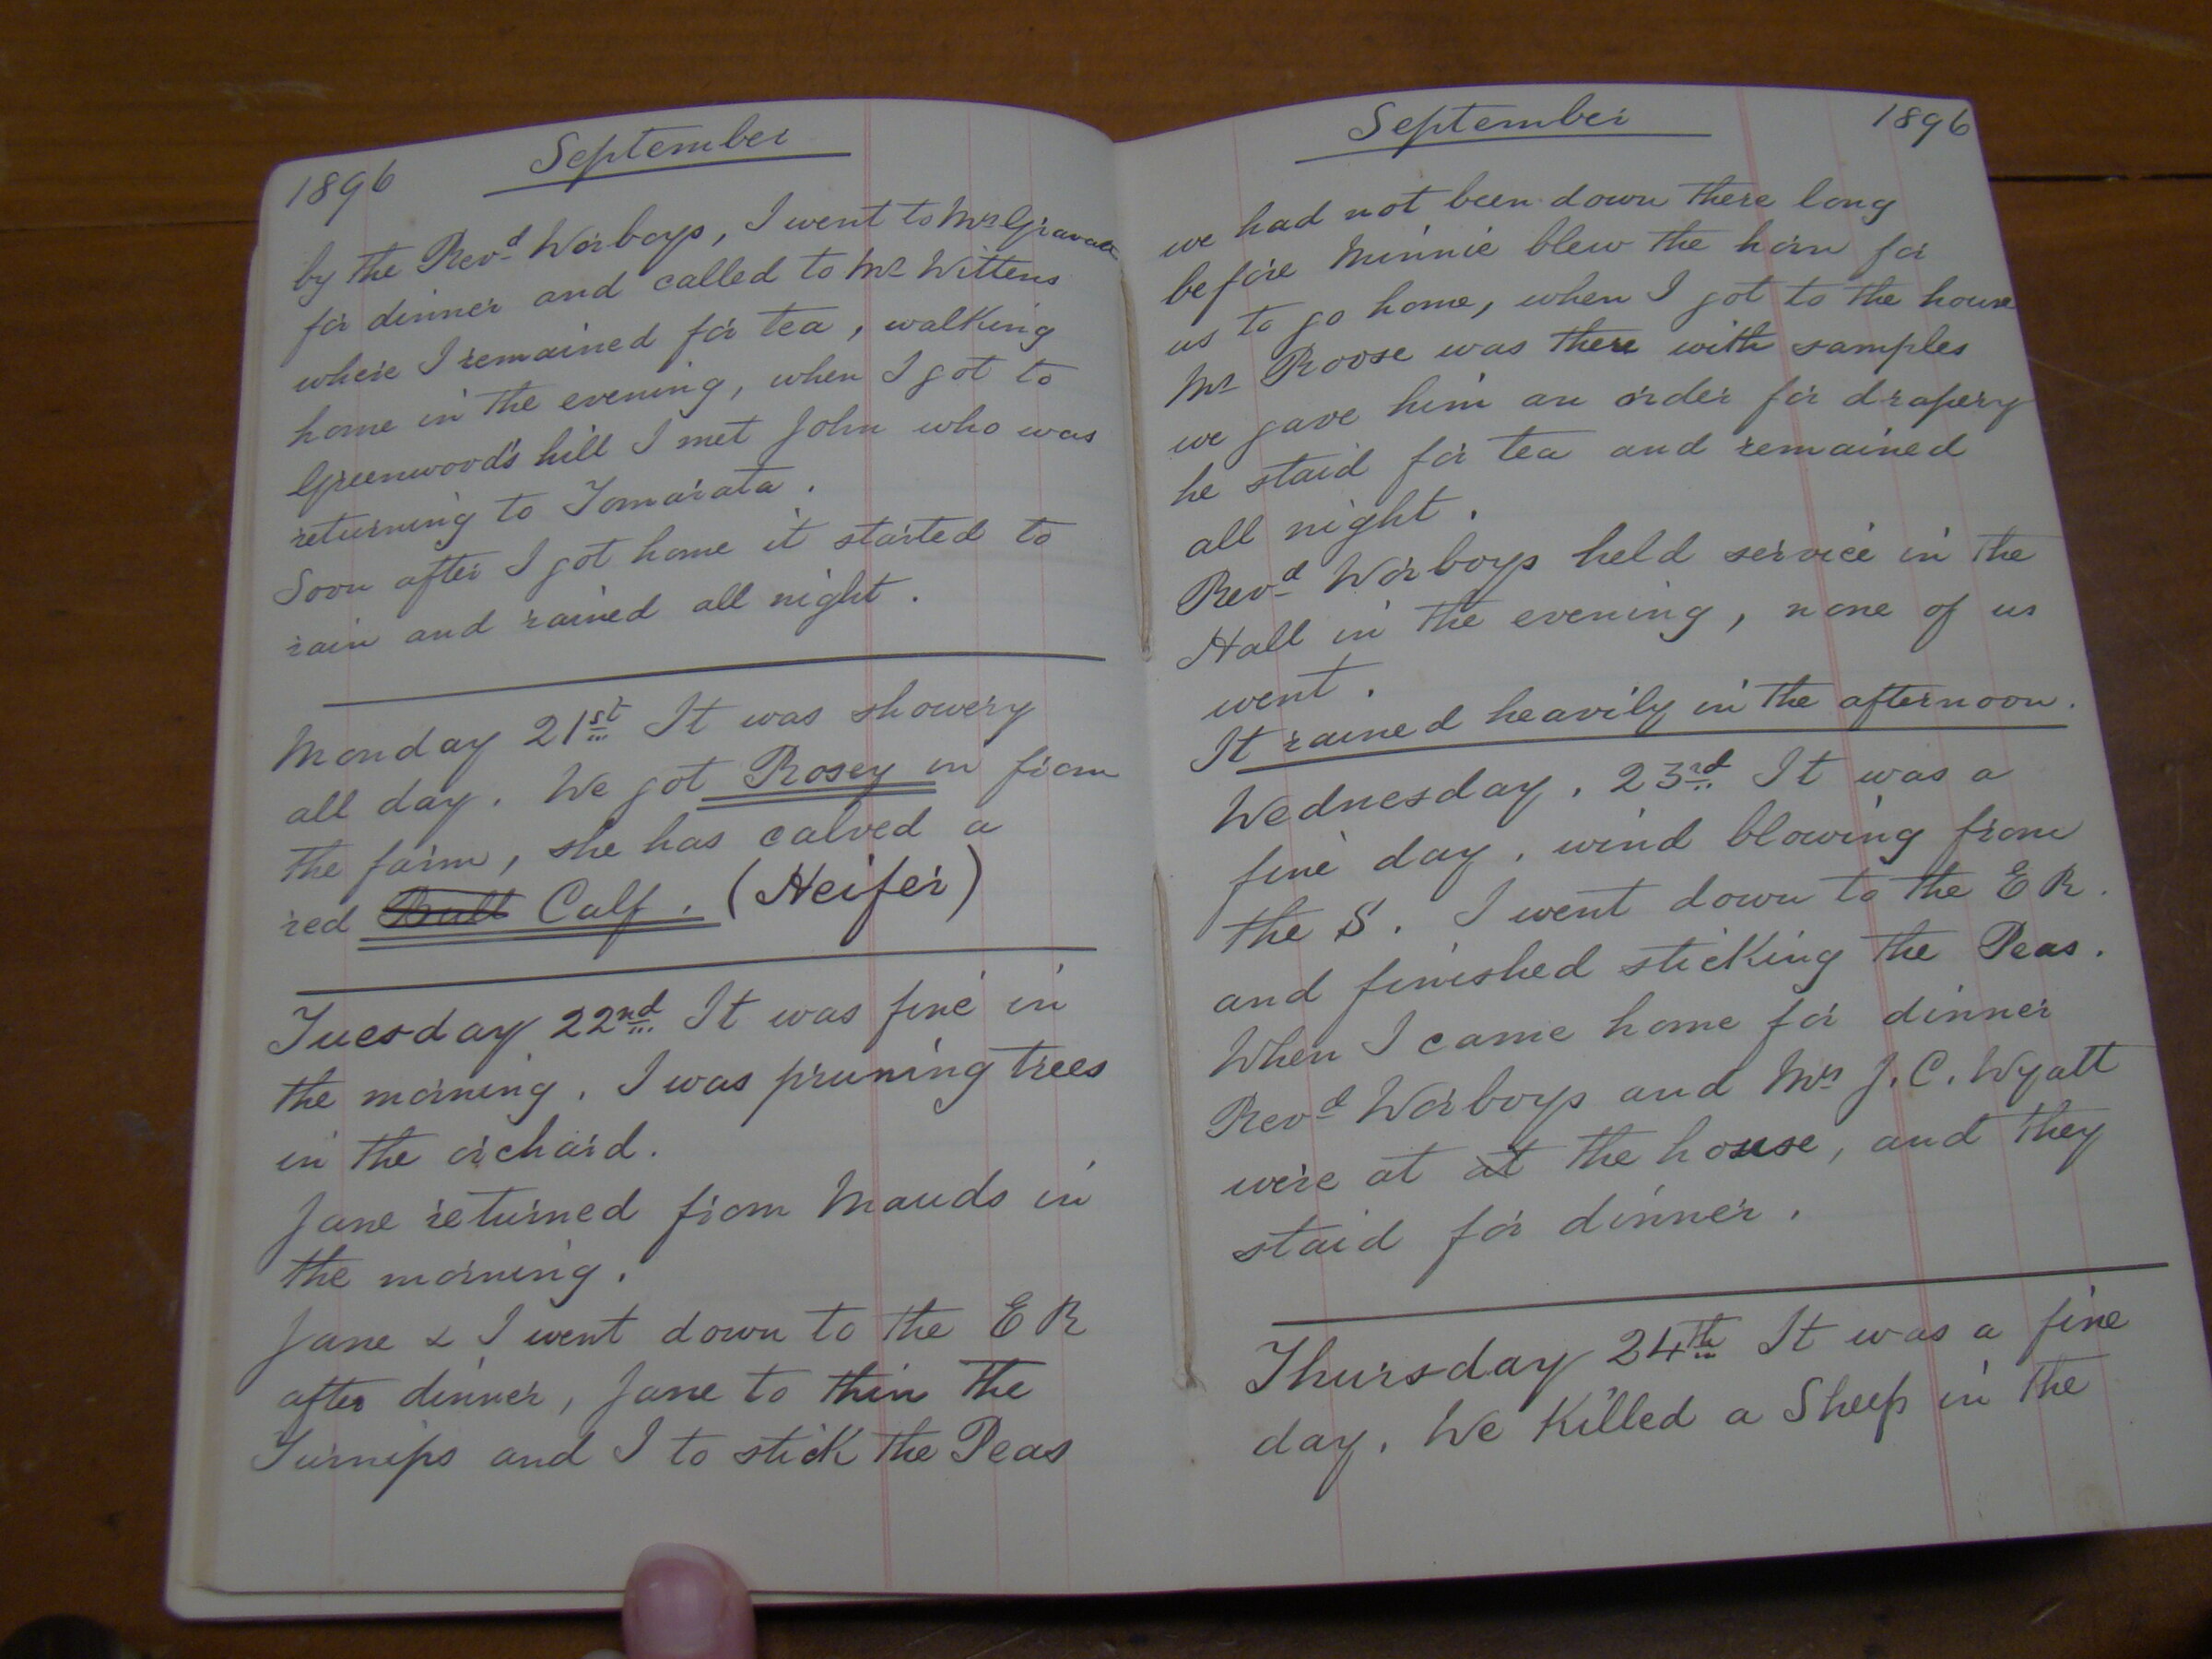 1896 September
by the Revd Worboys, I went to Mrs
for dinner and called to Mr Wittens
where I remained for tea, walking
home in the evening, when I got to
Greenwood's hill I met John who was
returning to Tomarata.
Soon after I got home it started to
rain and rained all night.
Monday 21st It was showery
all day. We got Rosey in from
the farm, she has calved a
red Bull Calf. (Heifer)
Tuesday 22nd It was fine in
the morning. I was pruning trees
in the orchard.
Jane returned from Mauds in
the morning.
Jane & I went down to the E R
after dinner, Jane to thin the
Turnips and I to stick the Peas
September 1896
we had not been down there long
before Minnie blew the horn for
us to go home, when I got to the house
Mr Roose was there with samples
we gave him an order for drapery
he staid for tea and remained
all night.
Revd Worboys held service in the
Hall in the evening, none of us
went.
It rained heavily in the afternoon.
Wednesday. 23rd It was a
fine day. wind blowing from
the S. I went down to the E R.
and finished sticking the Peas.
When I came home for dinner
Revd Worboys and Mrs J. C. Wyatt
were at at the house, and they
staid for dinner.
Thursday 24th It was a fine
day. We Killed a Sheep in the